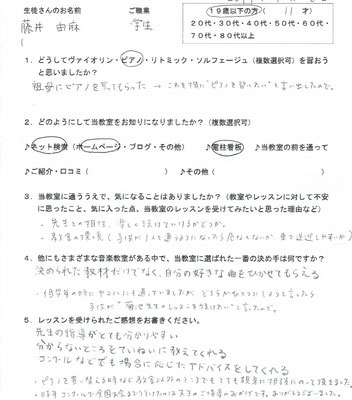 生徒さんのお名前 ご職業
藤井 由麻 学生
19歳以下の方( 11才)
20代・30代・40代・50代・60代・
70代・80代以上
1. どうしてヴァイオリン・ピアノ・リトミック・ソルフェージュ（複数選択可）を習おう
と思いましたか？
祖母にピアノを買ってもらった → これを機に"ピアノを習いたい"と言い出したので。
2. どのようにして当教室をお知りになりましたか？（複数選択可）
♪ネット検索（ホームページ・ブログ・その他） ♪電柱看板 ♪当教室の前を通って
♪ご紹介・口コミ（ ） ♪その他（ ）
3. 当教室に通ううえで、気になることはありましたか？（教室やレッスンに対して不安
に思ったこと、気に入った点、当教室のレッスンを受けてみたいと思った理由など）
・先生との相性、楽しく続けていけるかどうか。
・教室の環境（子供が1人で通うようになったら危なくないか、車で送迎しやすいか）
4. 他にもさまざまな音楽教室がある中で、当教室に選ばれた一番の決め手は何ですか？
決められた教材だけでなく、自分の好きな曲をひかせてもらえる
・低学年の時にヤマハにも通っていましたが、どちらかひとつにしようと言ったら
子供が"菊池先生のレッスンを続けたい"と言ったので。
5. レッスンを受けられてご感想をお書きください。
先生の指導がとても分かりやすい
分からないところをていねいに教えてくれる
コンクールなどでも場合に応じたアドバイスをしてくれる
・ピアノを買い替える時など教室以外のところでもとても親身に相談にのって頂きました。